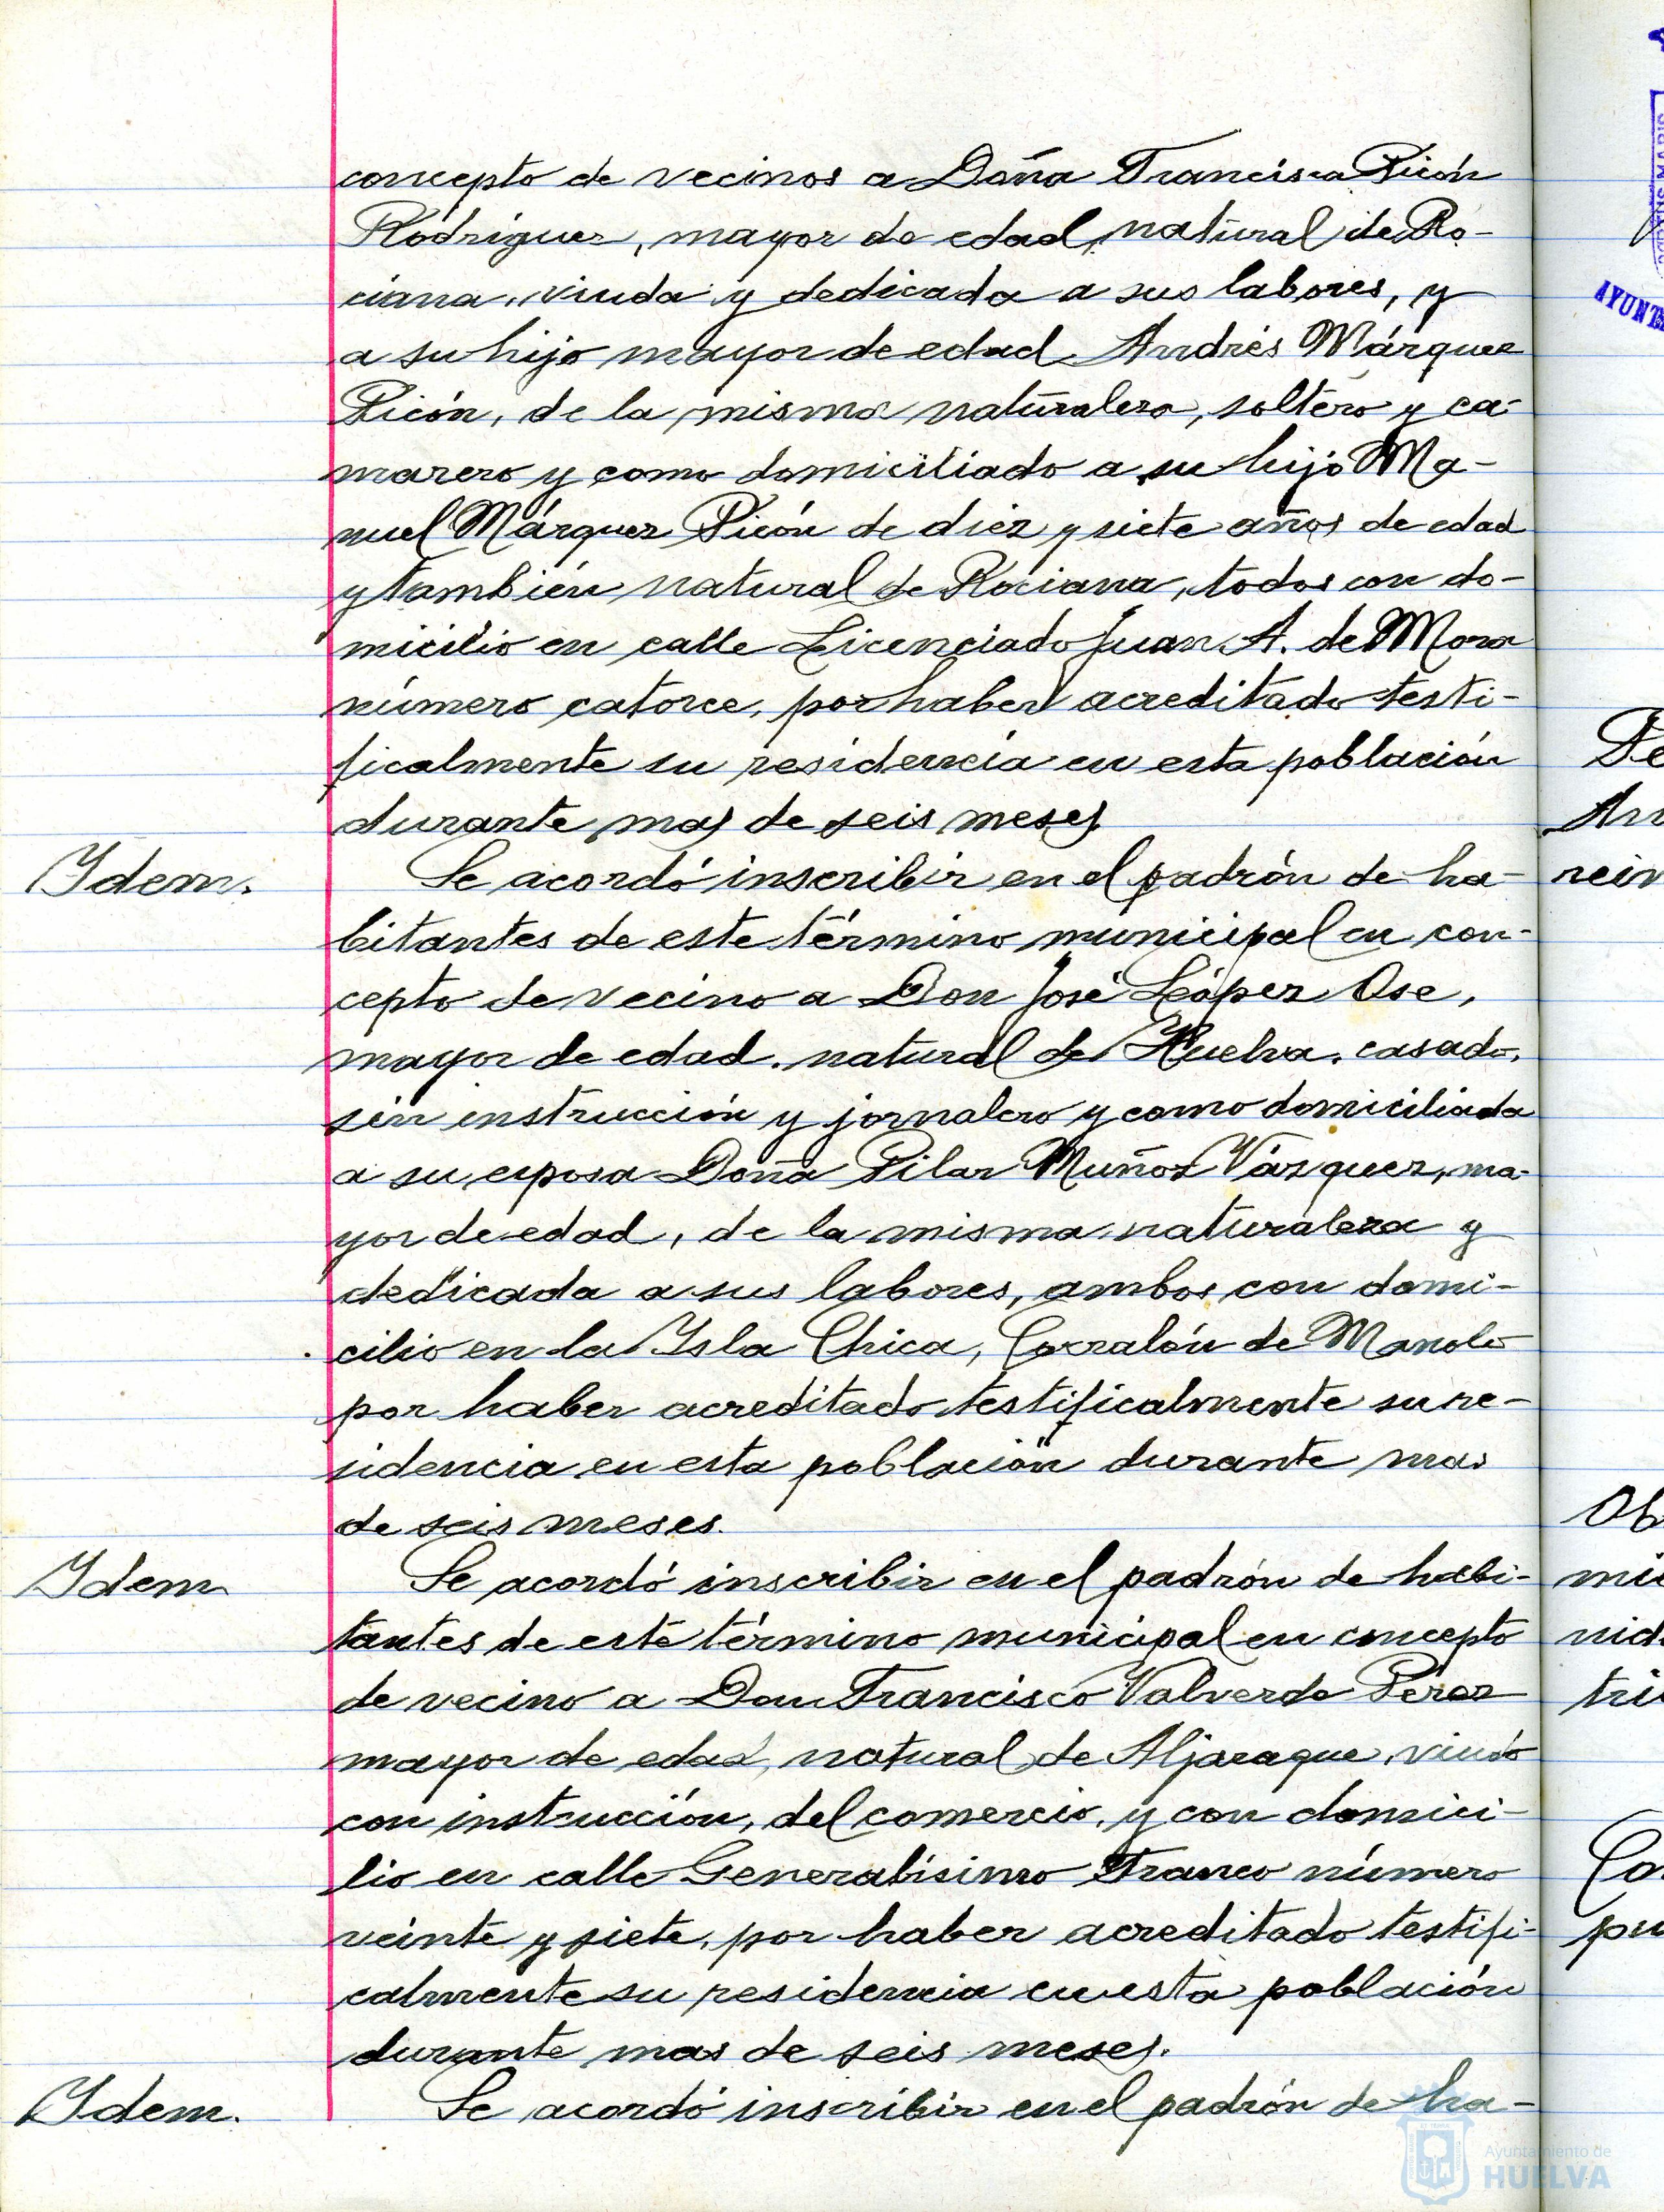 concepto de vecinos a Doña Francisca Picón
Rodriguez, mayor de edad, natural de Ro-
ciana, viuda y dedicada a sus labores, y
a su hijo mayor de edad Andrés Márquez
Picón, de la misma naturaleza, soltero y ca-
marero y como domiciliado a su hijo Ma-
nuel Márquez Picón de diez y siete años de edad
y también natural de Rociana, todos con do-
micilio en calle Licenciado Juan A. de Mora
número catorce, por haber acreditado testi-
ficalmente su residencia en esta población
durante mas de seis meses
Ydem.
Se acordó inscribir en el padrón de ha-
bitantes de este término municipal en con-
cepto de vecino a Don José López Ose,
mayor de edad, natural de Huelva, casado,
sin instrucción y jornalero y como domiciliada
a su esposa Doña Pilar Muñoz Vázquez, ma-
yor de edad, de la misma naturaleza y
dedicada a sus labores, ambos con domi-
cilio en la Ysla Chica, Corralón de Manolo
por haber acreditado testificalmente su re-
sidencia en esta población durante mas
de seis meses.
Ydem
Se acordó inscribir en el padrón de habi-
tantes de este término municipal en concepto
de vecino a Don Francisco Valverde Pérez
mayor de edad, natural de Aljaraque, viudo
con instrucción, del comercio, y con domici-
lio en calle Generalísimo Franco número
veinte y siete, por haber acreditado testifi-
calmente su residencia en esta población
durante mas de seis meses.
Ydem.
Se acordó inscribir en el padrón de ha-
Ayuntamiento de
HUELVA
AYUNT